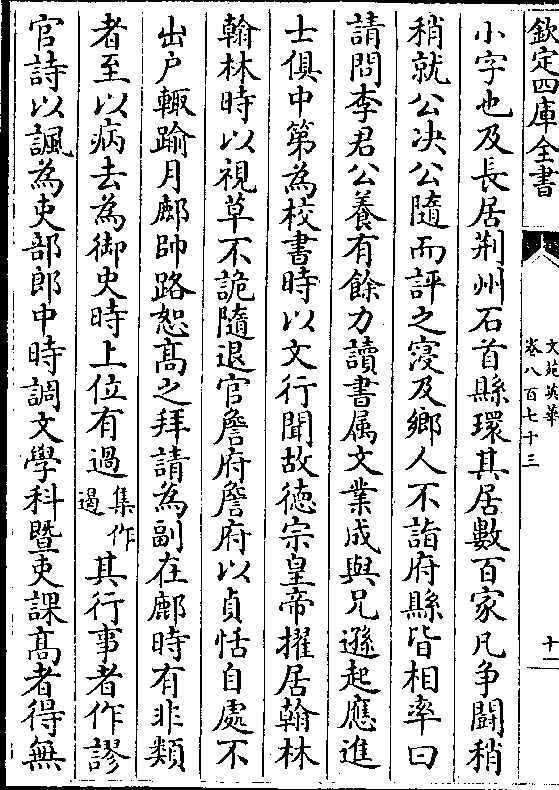 欽定四庫全書
文苑英華
卷八百七十三
十一
小字也及長居荆州石首縣環其居數百家凡争鬭稍
稍就公决公隨而評之寖及鄉人不詣府縣皆相率曰
請問李君公養有餘力讀書属文業成與兄遜起應進
士俱中第為校書時以文行聞故徳宗皇帝擢居翰林
翰林時以視草不詭隨退官詹府詹府以貞恬自處不
出户輙踰月鄜帥路恕髙之拜請為副在鄜時有非類
者至以病去為御史時上位有過集作遏其行事者作謬
官詩以諷為吏部郎中時調文學科暨吏課髙者得無